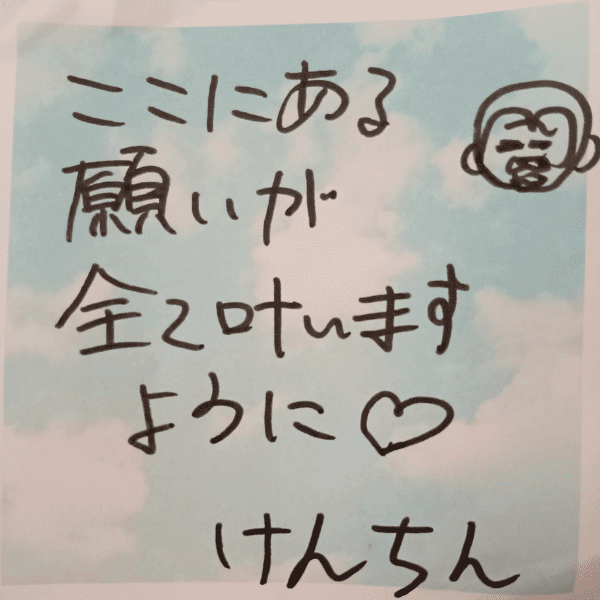 ここにある
願いが
全て叶います
ように♡
けんちん